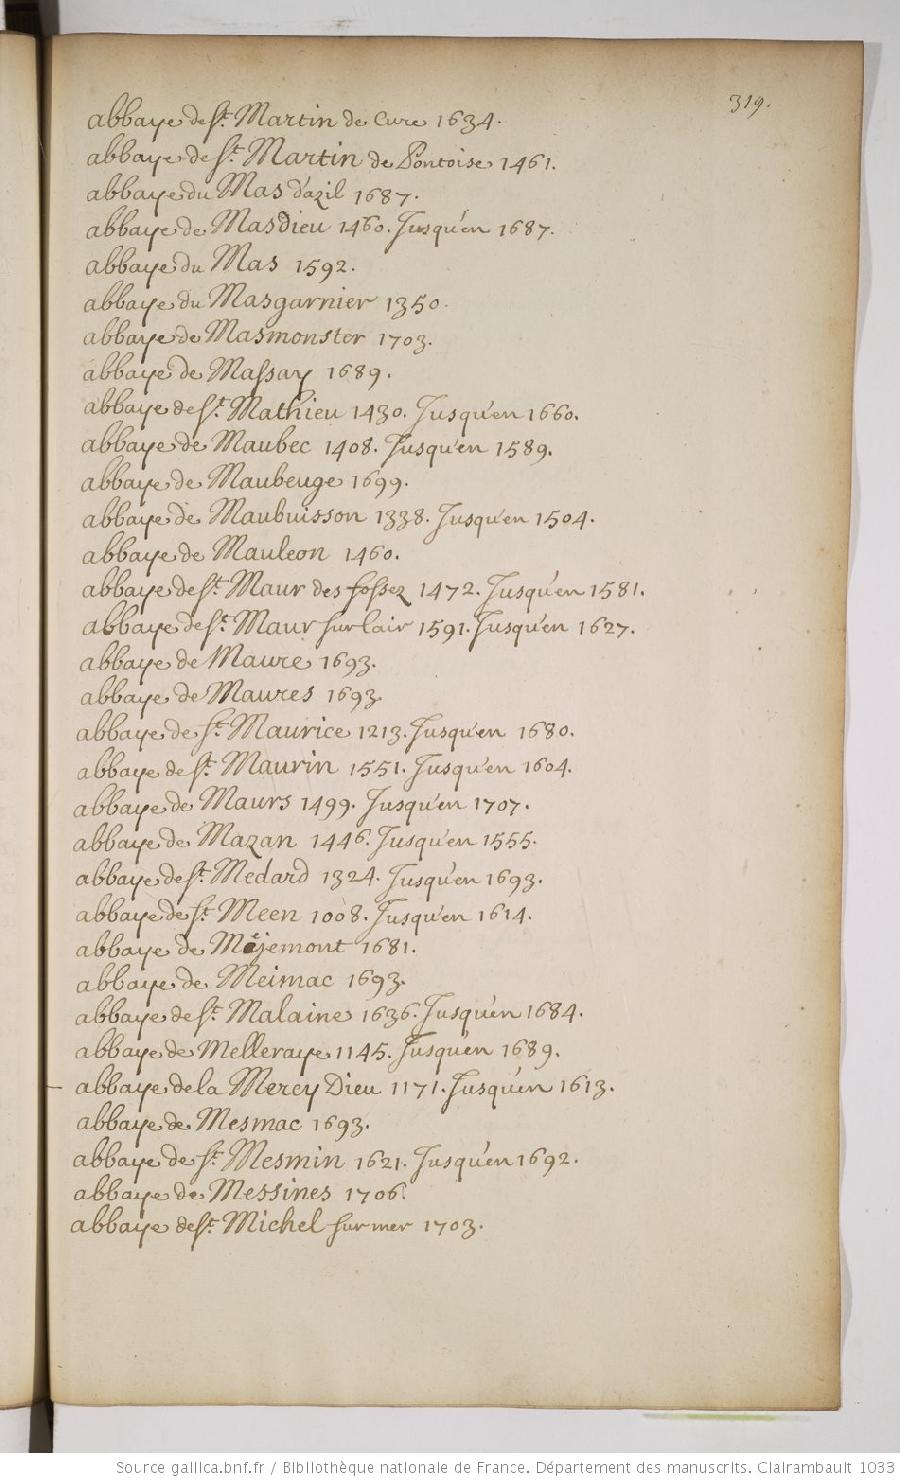 319.
abbaye de St. Martin de Cure 1634.
abbaye de St. Martin de Pontoise 1461.
abbaye du Mas d'azil 1687.
abbaye de Masdieu 1460. Jusqu'en 1687.
abbaye du Mas 1592.
abbaye du Masgarnier 1350.
abbaye de Masmonster 1703.
abbaye de Massay 1689.
abbaye de St. Mathieu 1430. Jusqu'en 1660.
abbaye de Maubec 1408. Jusqu'en 1589.
abbaye de Maubeuge 1699.
abbaye de Maubuisson 1338. Jusqu'en 1504.
abbaye de Mauleon 1460.
abbaye de St. Maur des fossez 1472. Jusqu'en 1581.
abbaye de St. Maur sur lair 1591. Jusqu'en 1627.
abbaye de Maure 1693.
abbaye de Maures 1693.
abbaye de St. Maurice 1213. Jusqu'en 1680.
abbaye de St. Maurin 1551. Jusqu'en 1604.
abbaye de Maurs 1499. Jusqu'en 1707.
abbaye de Mazan 1446. Jusqu'en 1555.
abbaye de St. Medard 1324. Jusqu'en 1693.
abbaye de St. Meen 1008. Jusqu'en 1614.
abbaye de Mejemont 1681.
abbaye de Meimac 1693.
abbaye de St. Malaine 1636. Jusqu'en 1684.
abbaye de Melleraye 1145. Jusqu'en 1689.
abbaye de la Mercy Dieu 1171. Jusqu'en 1613.
abbaye de Mesmac 1693.
abbaye de St. Mesmin 1621. Jusqu'en 1692.
abbaye de Messines 1706.
abbaye de St. Michel sur mer 1703.
Source gallica.bnf.fr / Bibliothèque nationale de France. Département des manuscrits. Clairambault 1033